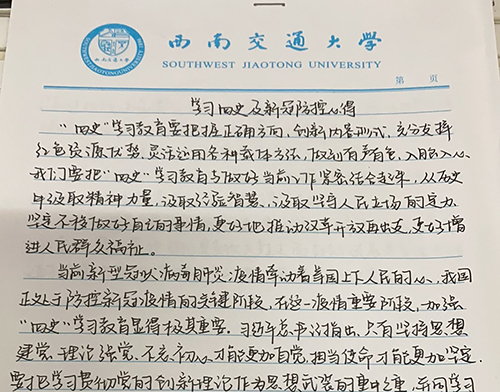 西南交通大学
SOUTHWEST JIAOTONG UNIVERSITY
第 页
学习四史及新冠防控心得
"四史"学习教育要把握正确方向，创新内容形式，充分发挥
红色资源优势，灵活运用各种载体方法，做到有声有色、入脑入心。
我们要把"四史"学习教育与做好当前工作紧密结合起来，从历史
中汲取精神力量、汲取经验智慧、汲取坚守人民立场的定力，
坚定不移做好自己的事情，更好地推动改革开放再出发，更好增
进人民群众福祉。
当前新型冠状病毒肺炎疫情牵动着举国上下人民的心，我国
正处于防控新冠疫情的关键阶段，在这一疫情重要阶段，加强
"四史"学习教育显得极其重要。习近平总书记指出，只有坚持思想
建党、理论强党，不忘初心才能更加自觉，担当使命才能更加坚定，
要把学习贯彻党的创新理论作为思想武装的重中之重，同学习